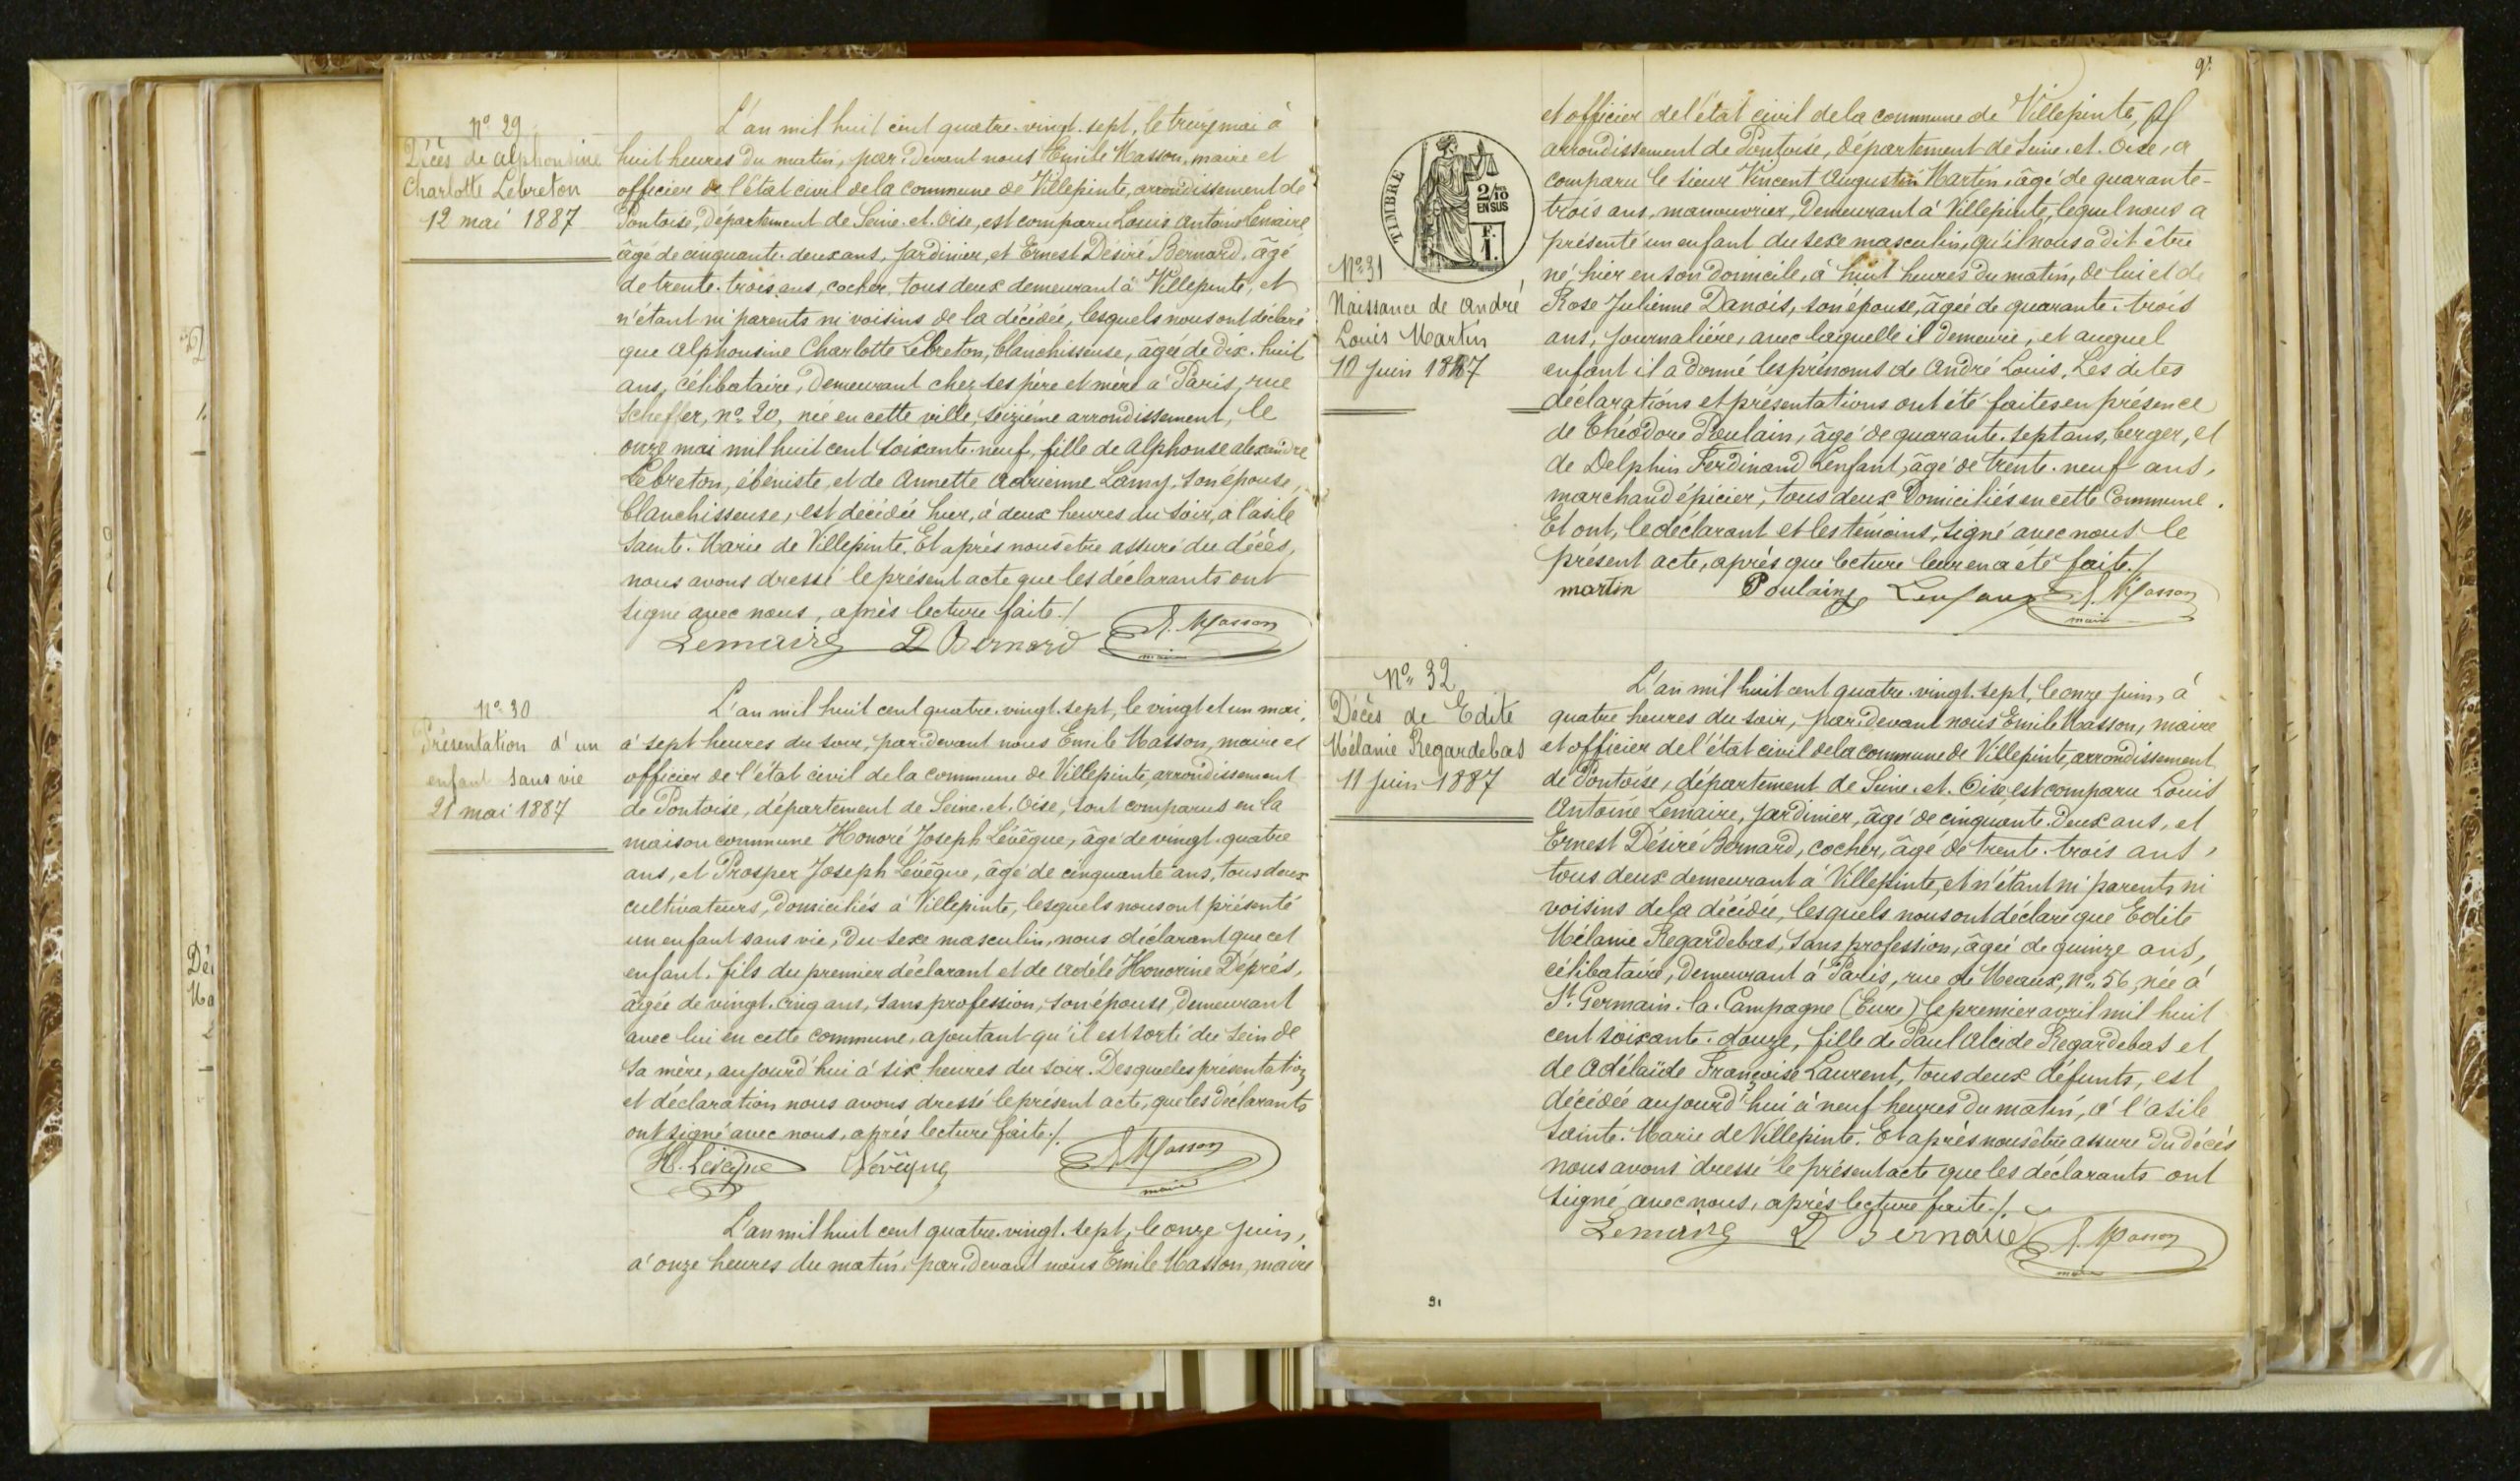 Nº 29
Décès de Alphonsine
Charlotte Lebreton
12 mai 1887
L'an mil huit cent quatre-vingt-sept, le treize mai à
huit heures du matin, par-devant nous Emile Masson, maire et
officier de l'état civil de la commune de Villepinte, arrondissement de
Pontoise, département de Seine-et-Oise, est comparu Louis Antoine Lemaire
âgé de cinquante-deux ans, jardinier, et Ernest Désiré Bernard, âgé
de trente-trois ans, cocher, tous deux demeurant à Villepinte, et
n'étant ni parents ni voisins de la décédée, lesquels nous ont déclaré
que Alphonsine Charlotte Lebreton, blanchisseuse, âgée de dix-huit
ans, célibataire, demeurant chez ses père et mère à Paris, rue
Scheffer, nº 20, née en cette ville, seizième arrondissement, le
onze mai mil huit cent soixante-neuf, fille de Alphonse Alexandre
Lebreton, ébéniste, et de Annette Adrienne Lamy, son épouse,
blanchisseuse, est décédée hier, à deux heures du soir, à l'asile
Sainte-Marie de Villepinte. Et après nous être assuré du décès,
nous avons dressé le présent acte que les déclarants ont
signé avec nous, après lecture faite./
Lemaire D Bernard E. Masson
maire
Nº 30
Présentation d'un
enfant sans vie
21 mai 1887
L'an mil huit cent quatre-vingt-sept, le vingt et un mai,
à sept heures du soir, par-devant nous Emile Masson, maire et
officier de l'état civil de la commune de Villepinte, arrondissement
de Pontoise, département de Seine-et-Oise, sont comparus en la
maison commune Honoré Joseph Lévêque, âgé de vingt-quatre
ans, et Prosper Joseph Lévêque, âgé de cinquante ans, tous deux
cultivateurs, domiciliés à Villepinte, lesquels nous ont présenté
un enfant sans vie, du sexe masculin, nous déclarant que cet
enfant, fils du premier déclarant et de Adèle Honorine Déprés,
âgée de vingt-cinq ans, sans profession, son épouse, demeurant
avec lui en cette commune, ajoutant qu'il est sorti du sein de
sa mère, aujourd'hui à six heures du soir. Desqueles présentation
et déclaration nous avons dressé le présent acte, que les déclarants
ont signé avec nous, après lecture faite./.
H. Lévêque Lévêque E. Masson
maire
L'an mil huit cent quatre-vingt-sept, le onze juin,
à onze heures du matin, par-devant nous Emile Masson, maire
9.
TIMBRE
2/10
EN SUS
F.
1.
Nº 31
Naissance de André
Louis Martin
10 juin 1887
et officier de l'état civil de la commune de Villepinte,
arrondissement de Pontoise, département de Seine-et-Oise, a
comparu le sieur Vincent Augustin Martin, âgé de quarante-
trois ans, manouvrier, demeurant à Villepinte, lequel nous a
présenté un enfant du sexe masculin, qu'il nous a dit être
né, hier en son domicile, à huit heures du matin, de lui et de
Rose Julienne Danois, son épouse, âgée de quarante-trois
ans, journalière, avec laquelle il demeure, et auquel
enfant il a donné les prénoms de André Louis. Les dites
déclarations et présentations ont été faites en présence
de Théodore Poulain, âgé de quarante-sept ans, berger, et
de Delphin Ferdinand Lenfant, âgé de trente-neuf ans,
marchand épicier, tous deux domiciliés en cette Commune.
Et ont, le déclarant et les témoins, signé avec nous le
présent acte, après que lecture leur en a été faite./
martin Poulain Lenfant E. Masson
maire
Nº 32
Décès de Edite
Mélanie Regardebas
11 juin 1887
L'an mil huit cent quatre-vingt-sept, le onze juin, à
quatre heures du soir, par-devant nous Emile Masson, maire
et officier de l'état civil de la commune de Villepinte, arrondissement
de Pontoise, département de Seine-et-Oise, est comparu Louis
Antoine Lemaire, jardinier, âgé de cinquante-deux ans, et
Ernest Désiré Bernard, cocher, âgé de trente-trois ans,
tous deux demeurant à Villepinte, et n'étant ni parents ni
voisins de la décédée, lesquels nous ont déclaré que Edite
Mélanie Regardebas, sans profession, âgée de quinze ans,
célibataire, demeurant à Paris, rue de Meaux, nº 56, née à
St Germain-la-Campagne (Eure) le premier avril mil huit
cent soixante-douze, fille de Paul Alcide Regardebas et
de Adélaïde Françoise Laurent, tous deux défunts, est
décédée aujourd'hui à neuf heures du matin, à l'asile
Sainte-Marie de Villepinte. Et après nous être assuré du décès
nous avons dressé le présent acte que les déclarants ont
signé avec nous, après lecture faite./.
Lemaire D Bernard E. Masson
maire
31